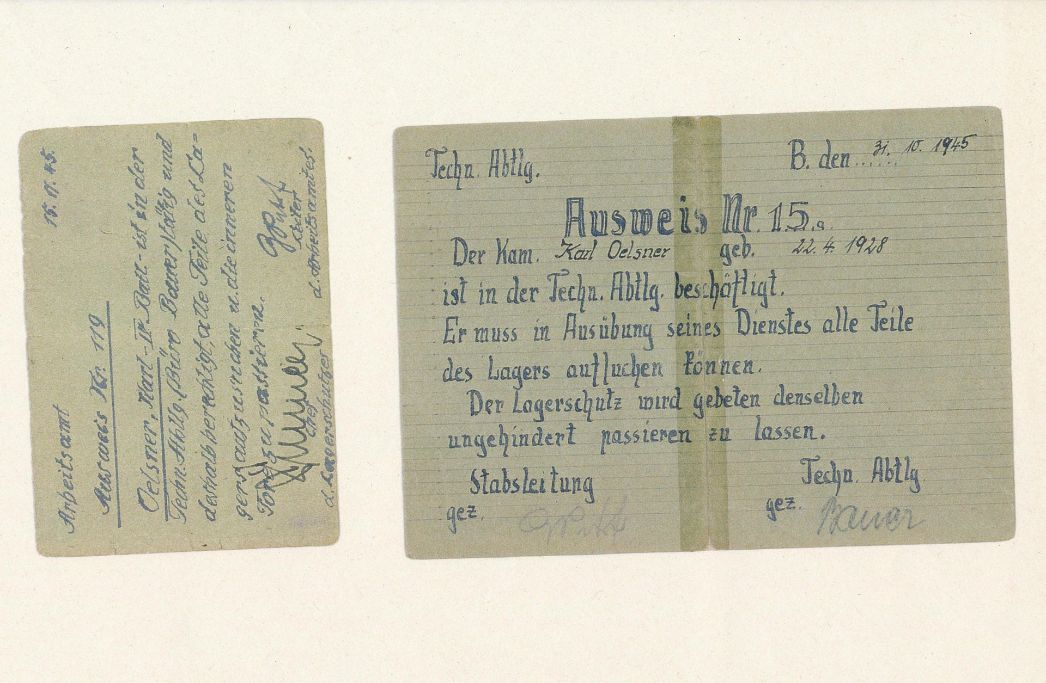 Arbeitsamt 15.11.45.
Ausweis Nr. 119
Oelsner, Karl - IV. Batl - ist in der
Techn. Abtlg. (Büro Bauer) tätig und
deshalb berechtigt, alle Teile des La-
gers aufzusuchen u. die inneren
Tore zu passieren.
Chef
d. Lagerschutzes
Leiter
d. Arbeitsamtes.
Techn. Abtlg. B. den 31. 10. 1945
Ausweis Nr. 15.
Der Kam. Karl Oelsner geb. 22.4.1928
ist in der Techn. Abtlg. beschäftigt.
Er muss in Ausübung seines Dienstes alle Teile
des Lagers aufsuchen können.
Der Lagerschutz wird gebeten denselben
ungehindert passieren zu lassen.
Stabsleitung Techn. Abtlg
gez. gez. Bauer